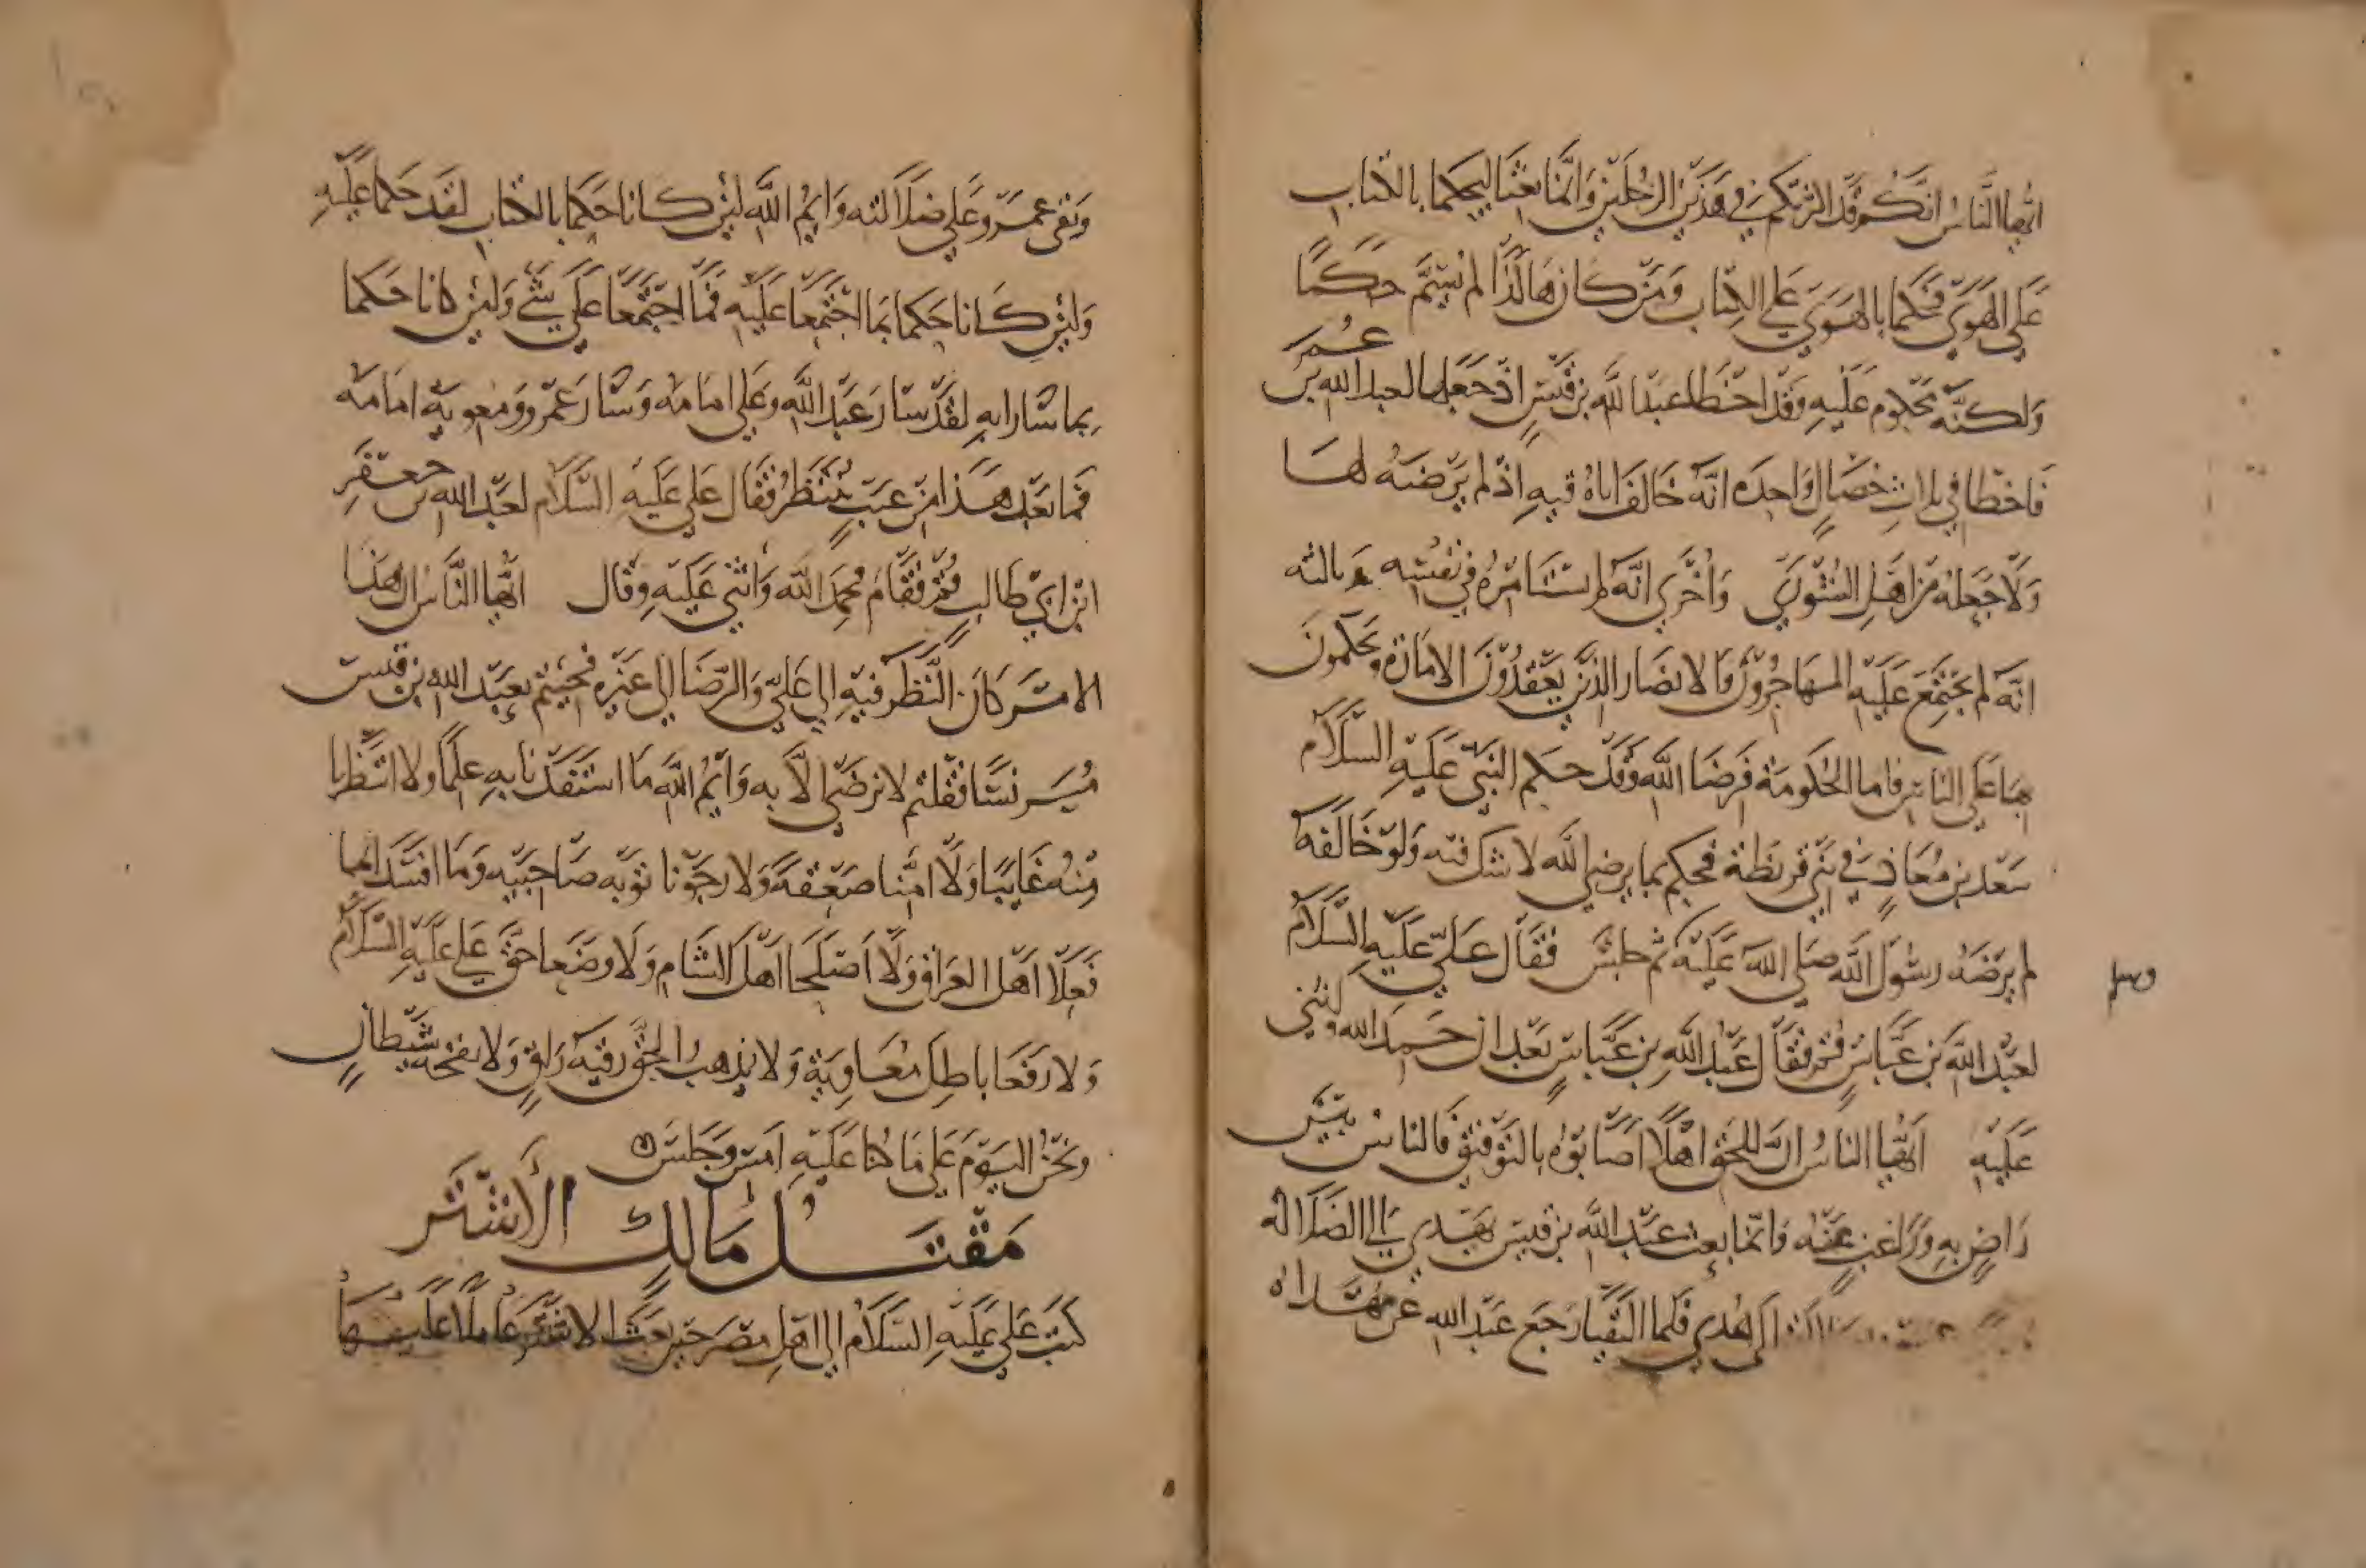 ايها الناس انكم قد اكثرتكم في هذين الرجلين وانما بعثنا ليحكما بالكتاب
على الهوى فحكما بالهوى على الكتاب ومن كان هاكذا لم يسم حكما
ولكنه محكوم عليه وقد اخطا عبدالله بن قيس اذ جعلها لعبد الله بن عمر
فاخطا في ثلاث خصال واحده انه خالف اباه فيه اذ لم يرضه لها
ولا جعله من اهل الشورى واخرى انه لم يستامره في نفسه وثالثه
انه لم يجتمع عليه المهاجرون والانصار الذين يعقدون الامارة ويحكمون
بها على الناس فاما الحكومة فرضا الله وقد حكم النبي عليه السلام
سعد بن معاذ في بني قريظة فحكم بما يرضي الله لا شك فيه ولو خالفه
لم يرضه رسول الله صلى الله عليه ثم جلس فقال علي عليه السلام
وسلم
لعبد الله بن عباس قم فقال عبد الله بن عباس بعد ان حمد الله واثنى
عليه ايها الناس ان للحق اهلا اصابوه بالتوفيق فالناس بين
راض به وراغب عنه وانما بعث عبد الله بن قيس بهدي الى الضلالة
الى الهدى فلما التقيا رجع عبد الله عن هداه
وبقى عمرو على ضلالته وايم الله لئن كانا حكما بالكتاب لقد حكما عليه
ولئن كانا حكما بما اجتمعا عليه فما اجتمعا على شي ولئن كانا حكما
بما سارا به لقد سار عبد الله وعلي امامه وسار عمرو ومعوية امامه
فما بعد هذا من عيب ينتظر فقال علي عليه السلام لعبد الله بن جعفر
ابن ابي طالب قم فقام فحمد الله واثنى عليه وقال ايها الناس ان هذا
الامر كان النظر فيه الى علي والرضا الى غيره فجيتم بعبد الله بن قيس
مبرنسا فقلتم لا نرضى الا به وايم الله ما استفدنا به علما ولا انتظرنا
منه غايبا ولا امنا ضعفه ولا رجونا توبه صاحبيه وما افسدا بما
فعلا اهل العراق ولا اصلحا اهل الشام ولا وضعا حق علي عليه السلام
ولا رفعا باطل معاوية ولا يذهب الحق رقيه راق ولا نفخه شيطان
ونحن اليوم على ما كنا عليه امس وجلس
مقتل مالك الاشتر
كتب علي عليه السلام الى اهل مصر حين بعث الاشتر عاملا عليها